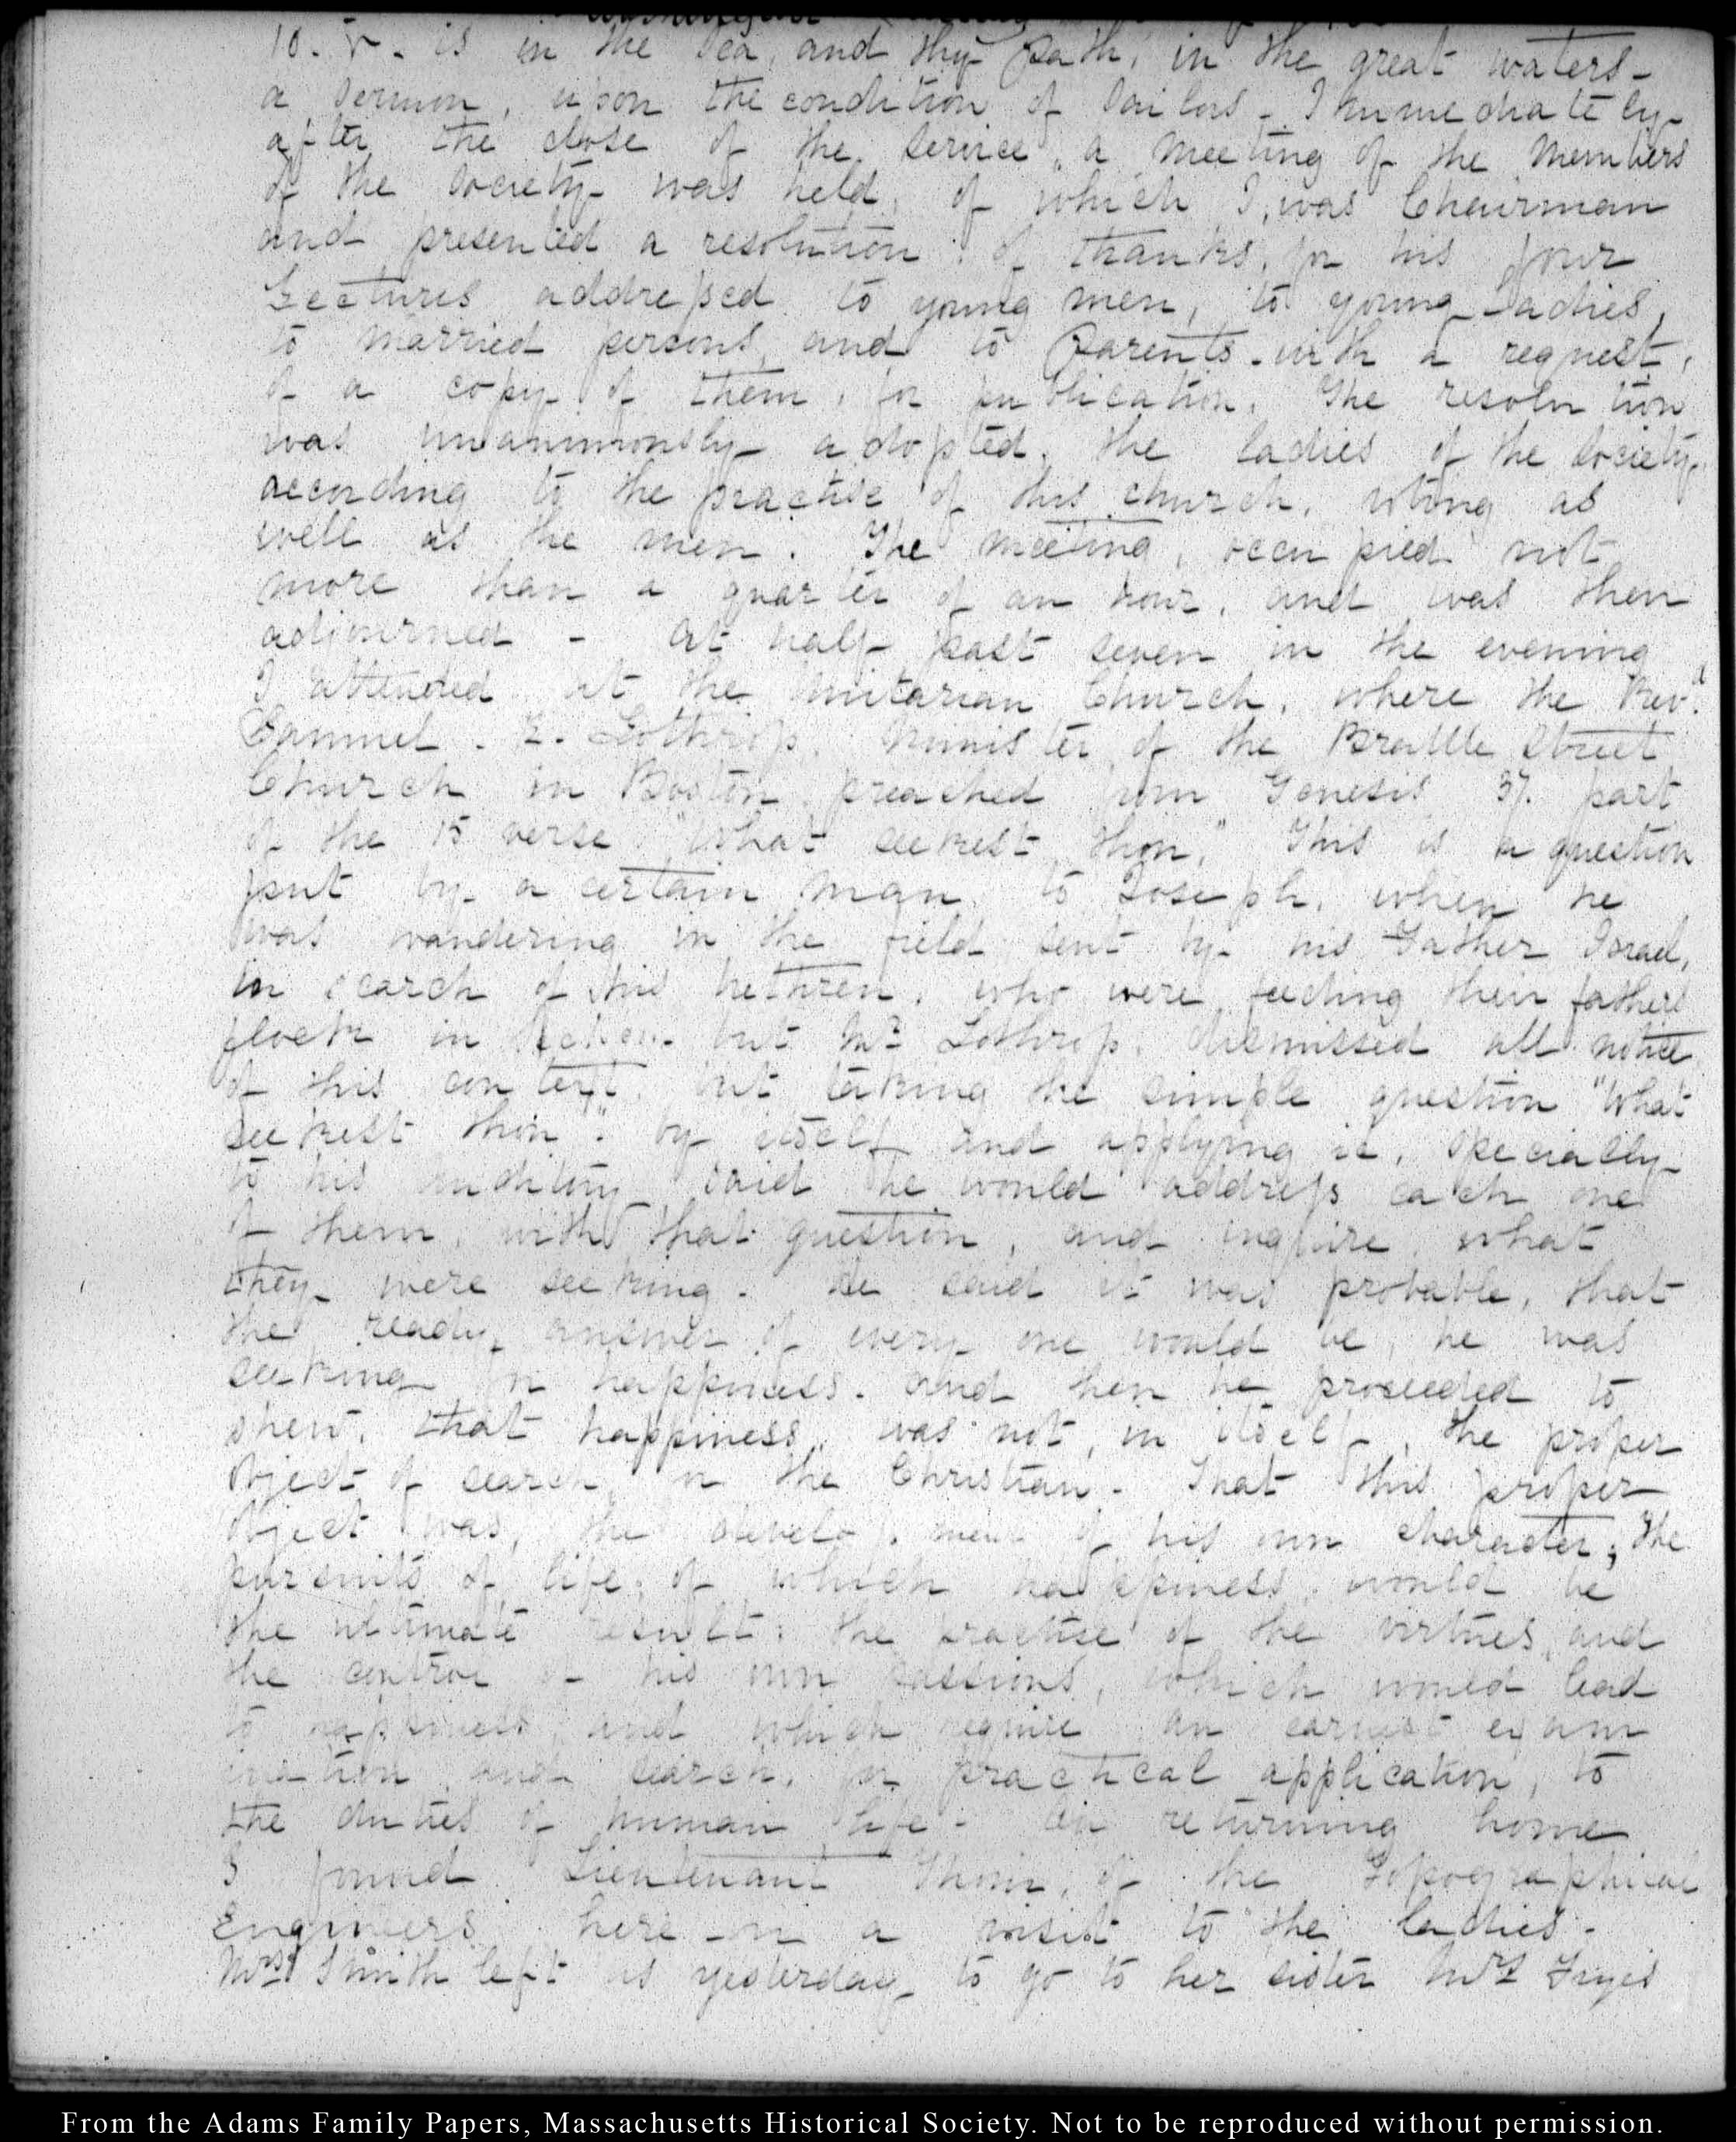 10. V. is in the Sea, and thy Path, in the great waters-
a Sermon, upon the condition of Sailors - Immediately
after the close of the Service, a meeting of the Members
of the Society was held, of which I, was Chairman
and presented a resolution of thanks, for his four
Lectures addressed to young men, to young Ladies,
to married persons, and to Parents - with a request,
of a copy of them, for publication. The resolution
was unanimously adopted, the ladies of the Society,
according to the practise of this church, voting as
well as the men. The meeting, occupied not
more than a quarter of an hour, and was then
adjourned - At half past seven in the evening
I attended at the Unitarian Church, where the Revd.
Samuel. K. Lothrop, Minister of the Brattle Street
Church in Boston preached from Genesis 37. part
of the 15 verse "What seekest thou," This is a question
put by a certain man to Joseph, when he
was wandering in the field sent by his Father Israel,
in search of his brethren, who were feeding their fathers
flock in but Mr Lothrop, dismissed all notice
of this context, but taking the simple question "What
seekest thou". by itself and applying it, specially
to his auditory said he would address each one
of them, with that question, and inquire, what
they were seeking. He said it was probable, that
the ready answer of every one would be, he was
seeking for happiness. And then he proceeded to
shew, that happiness, was not, in itself, the proper
object of search, for the Christian. That this proper
object was, the development of his own character; the
pursuits of life; of which happiness, would be
the ultimate result: the practise of the virtues, and
the control of his own passions, which would lead
to happiness, and which require an earnest exam
ination and search, for practical application, to
the duties of human life - On returning home
I found Lieutenant Thom, of the Topographical
Engineers here on a visit to the ladies -
Mrs Smith left us yesterday to go to her sister Mrs Fryes
From the Adams Family Papers, Massachusetts Historical Society. Not to be reproduced without permission.